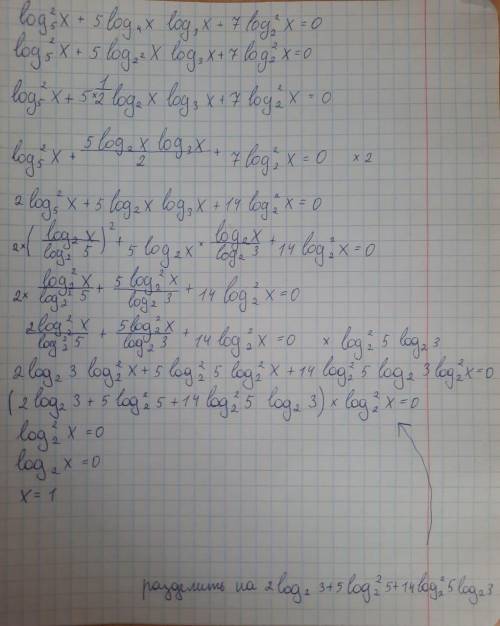 log₅²x + 5log₄x log₃x + 7log₂²x = 0
log₅²x + 5log₂²x log₃x + 7log₂²x = 0
log₅²x + 5×1/2 log₂x log₃x + 7log₂²x = 0
log₅²x + (5log₂x log₃x)/2 + 7log₂²x = 0 ×2
2log₅²x + 5log₂x log₃x + 14log₂²x = 0
2×(log₂x/log₂5)² + 5log₂x × log₂x/log₂3 + 14log₂²x = 0
2× log₂²x/log₂²5 + 5log₂²x/log₂3 + 14log₂²x = 0
2log₂²x/log₂²5 + 5log₂²x/log₂3 + 14log₂²x = 0 × log₂²5 log₂3
2log₂3 log₂²x + 5log₂²5 log₂²x + 14log₂²5 log₂3 log₂²x = 0
(2log₂3 + 5log₂²5 + 14log₂²5 log₂3) × log₂²x = 0
log₂²x = 0
log₂x = 0
x = 1
разделить на 2log₂3+5log₂²5+14log₂²5log₂3